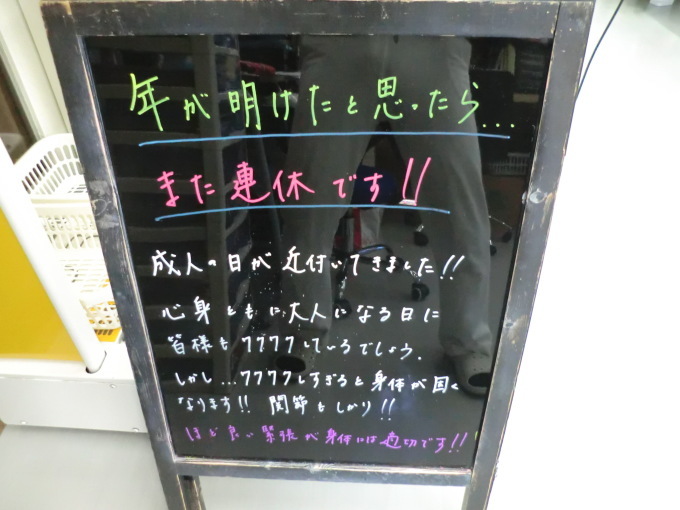 年が明けたと思ったら...
また連休です!!
成人の日が近付いてきました!!
心身ともに大人になる日に
皆様もワクワクしているでしょう.
しかし...ワクワクしすぎると身体が固く
なります!! 関節もしかり!!
ほど良い緊張が身体には適切です!!